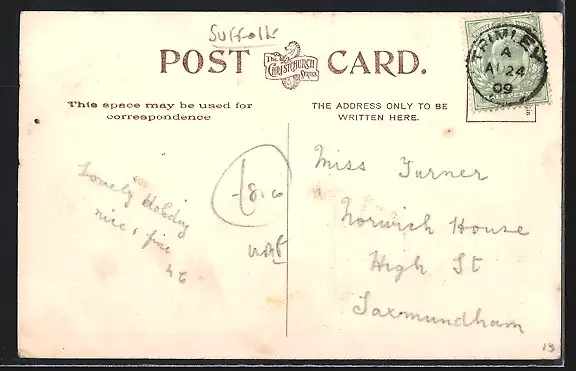 Suffolk
POST CARD.
The
CHRISTCHURCH
SERIES
TRIMLEY
A
AU 24
09
This space may be used for
correspondence
THE ADDRESS ONLY TO BE
WRITTEN HERE.
Lovely Holiday
nice & fine
Miss Turner
Norwich House
High St
Saxmundham
13